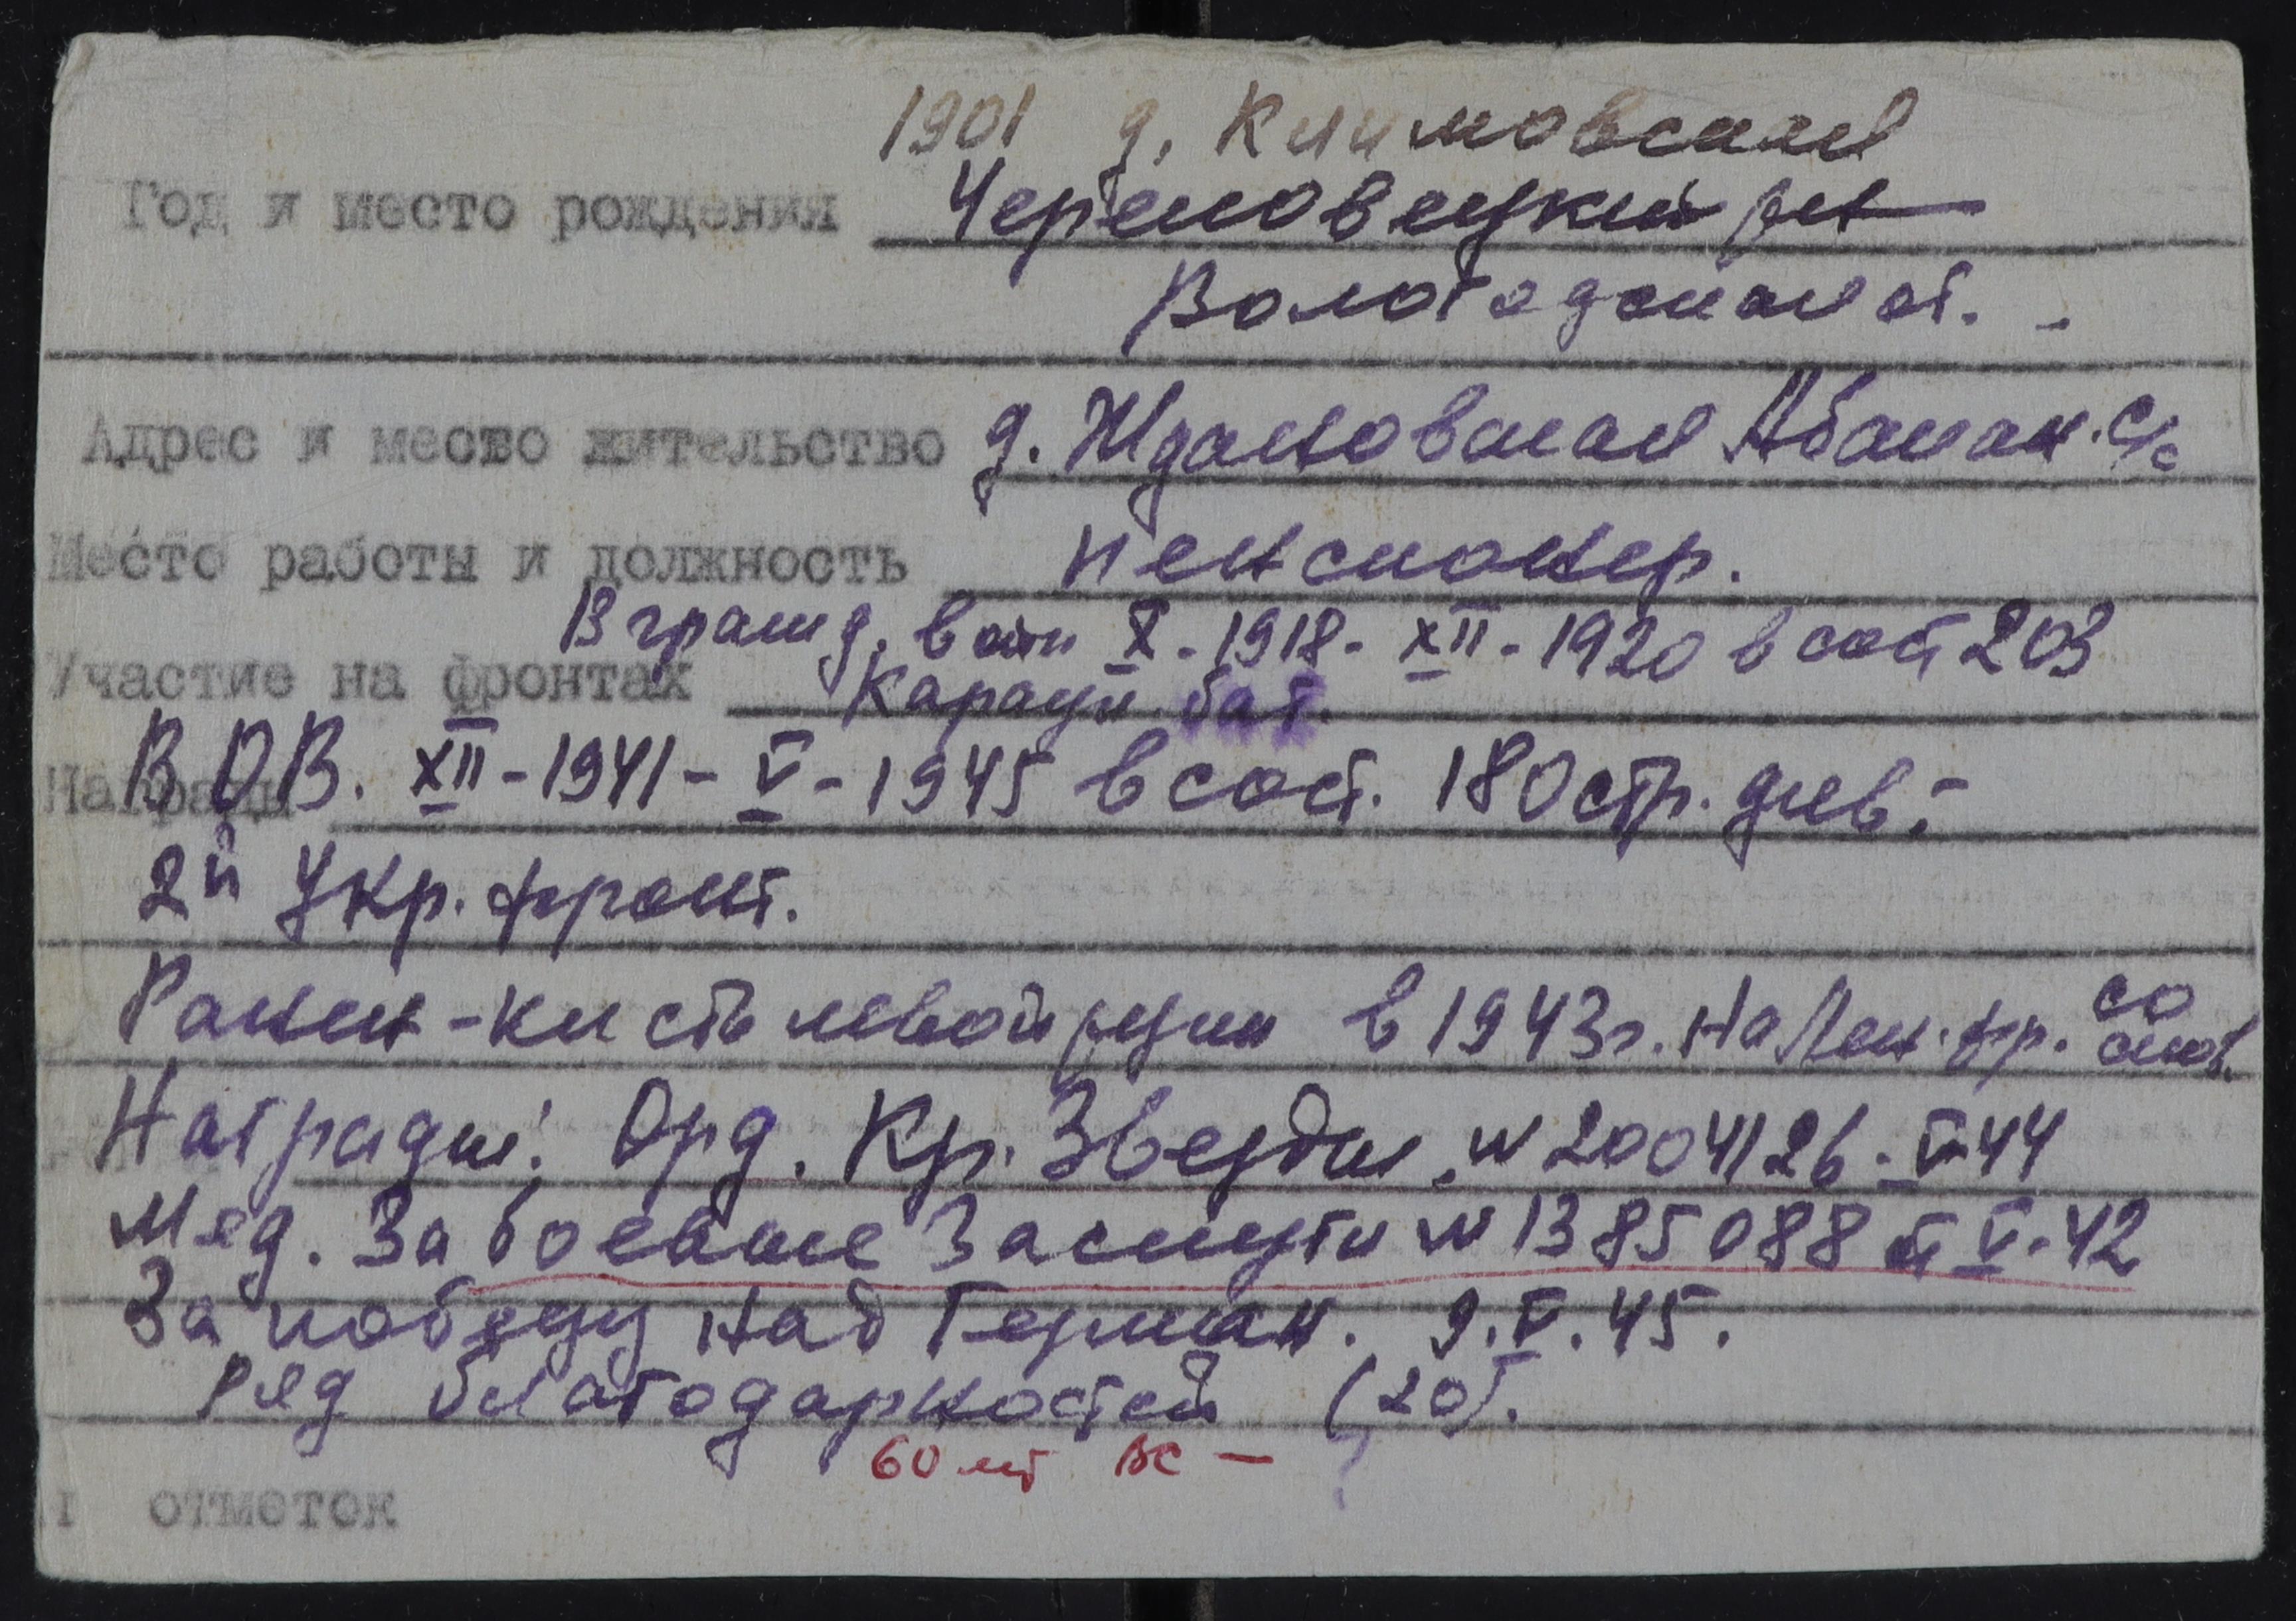 1901 д. Климовская
Год и место рождения Череповецкий рн
Вологодская об.
Адрес и место жительство д. Ждановская Абакан. с/с
Место работы и должность пенсионер.
В гражд. войн X - 1918 - XII - 1920 в сост 203
Участие на фронтах Караул. бат.
Награды В ОВ. XII - 1941 - V - 1945 в сост. 180 стр. див.
2й Укр. фронт.
Ранен - кисть левой руки в 1943 г. на Лен. фр. со
Награды: Орд. Кр. Звезды № 2004126 - V-44
Мед. За боевые заслуги № 1385088 от V-42
За победу над Герман. 9.V.45.
Ряд благодарностей (20).
60 лет ВС -
отметок